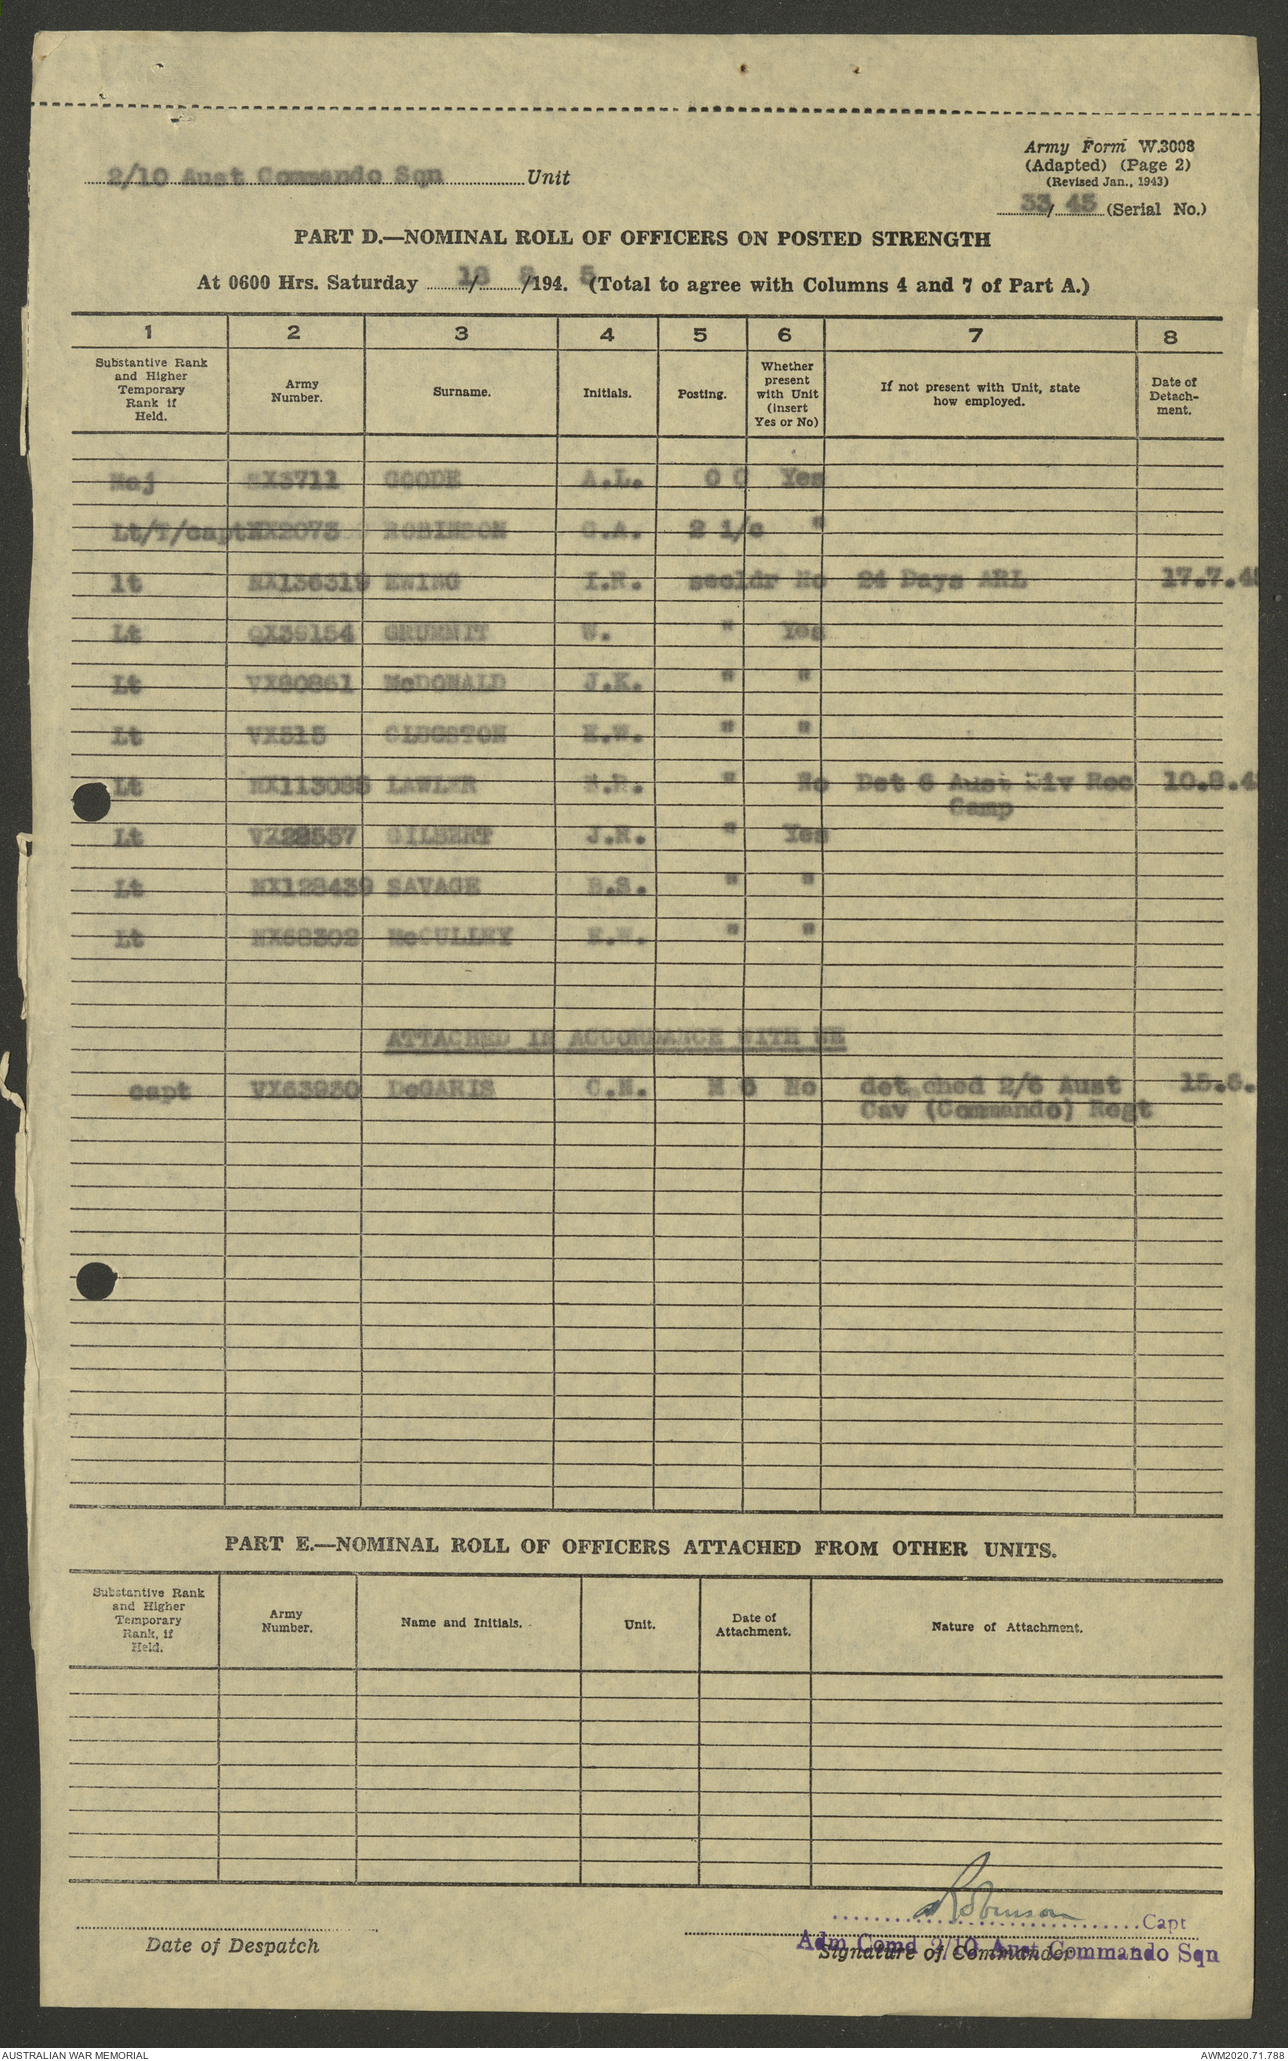 Army Form W.3008
(Adapted) (Page 2)
(Revised Jan., 1943)
33/45 (Serial No.)
2/10 Aust Commando Sqn Unit
PART D.—NOMINAL ROLL OF OFFICERS ON POSTED STRENGTH
At 0600 Hrs. Saturday 18/8/194. 5 (Total to agree with Columns 4 and 7 of Part A.)
1 2 3 4 5 6 7 8
Substantive Rank and Higher Temporary Rank if Held. Army Number. Surname. Initials. Posting. Whether present with Unit (insert Yes or No) If not present with Unit, state how employed. Date of Detach-ment.
Maj SX3711 GOODE A.L. O C Yes
Lt/T/capt NX2073 ROBINSON G.A. 2 i/c "
lt NX136319 EWING I.R. secldr No 24 Days ARL 17.7.45
Lt QX36154 GRUMMIT W. " Yes
Lt VX80861 McDONALD J.K. " "
Lt VX515 CLUGSTON " "
Lt NX113085 LAWLER " No Det 6 Aust Div Rec 10.8.4
Camp
Lt VX28557 GILBERT J.R. " Yes
Lt NX128439 SAVAGE B.S. " "
Lt NX68302 McCULLEY " "
ATTACHED IN ACCORDANCE WITH WE
capt VX63930 DeGARIS C.N. M O No detached 2/6 Aust 15.6.
Cav (Commando) Regt
PART E.—NOMINAL ROLL OF OFFICERS ATTACHED FROM OTHER UNITS.
Substantive Rank and Higher Temporary Rank, if Held. Army Number. Name and Initials. Unit. Date of Attachment. Nature of Attachment.
Robinson Capt
Adm Comd 2/10 Aust Commando Sqn
Date of Despatch Signature of Commander
AUSTRALIAN WAR MEMORIAL AWM2020.71.788